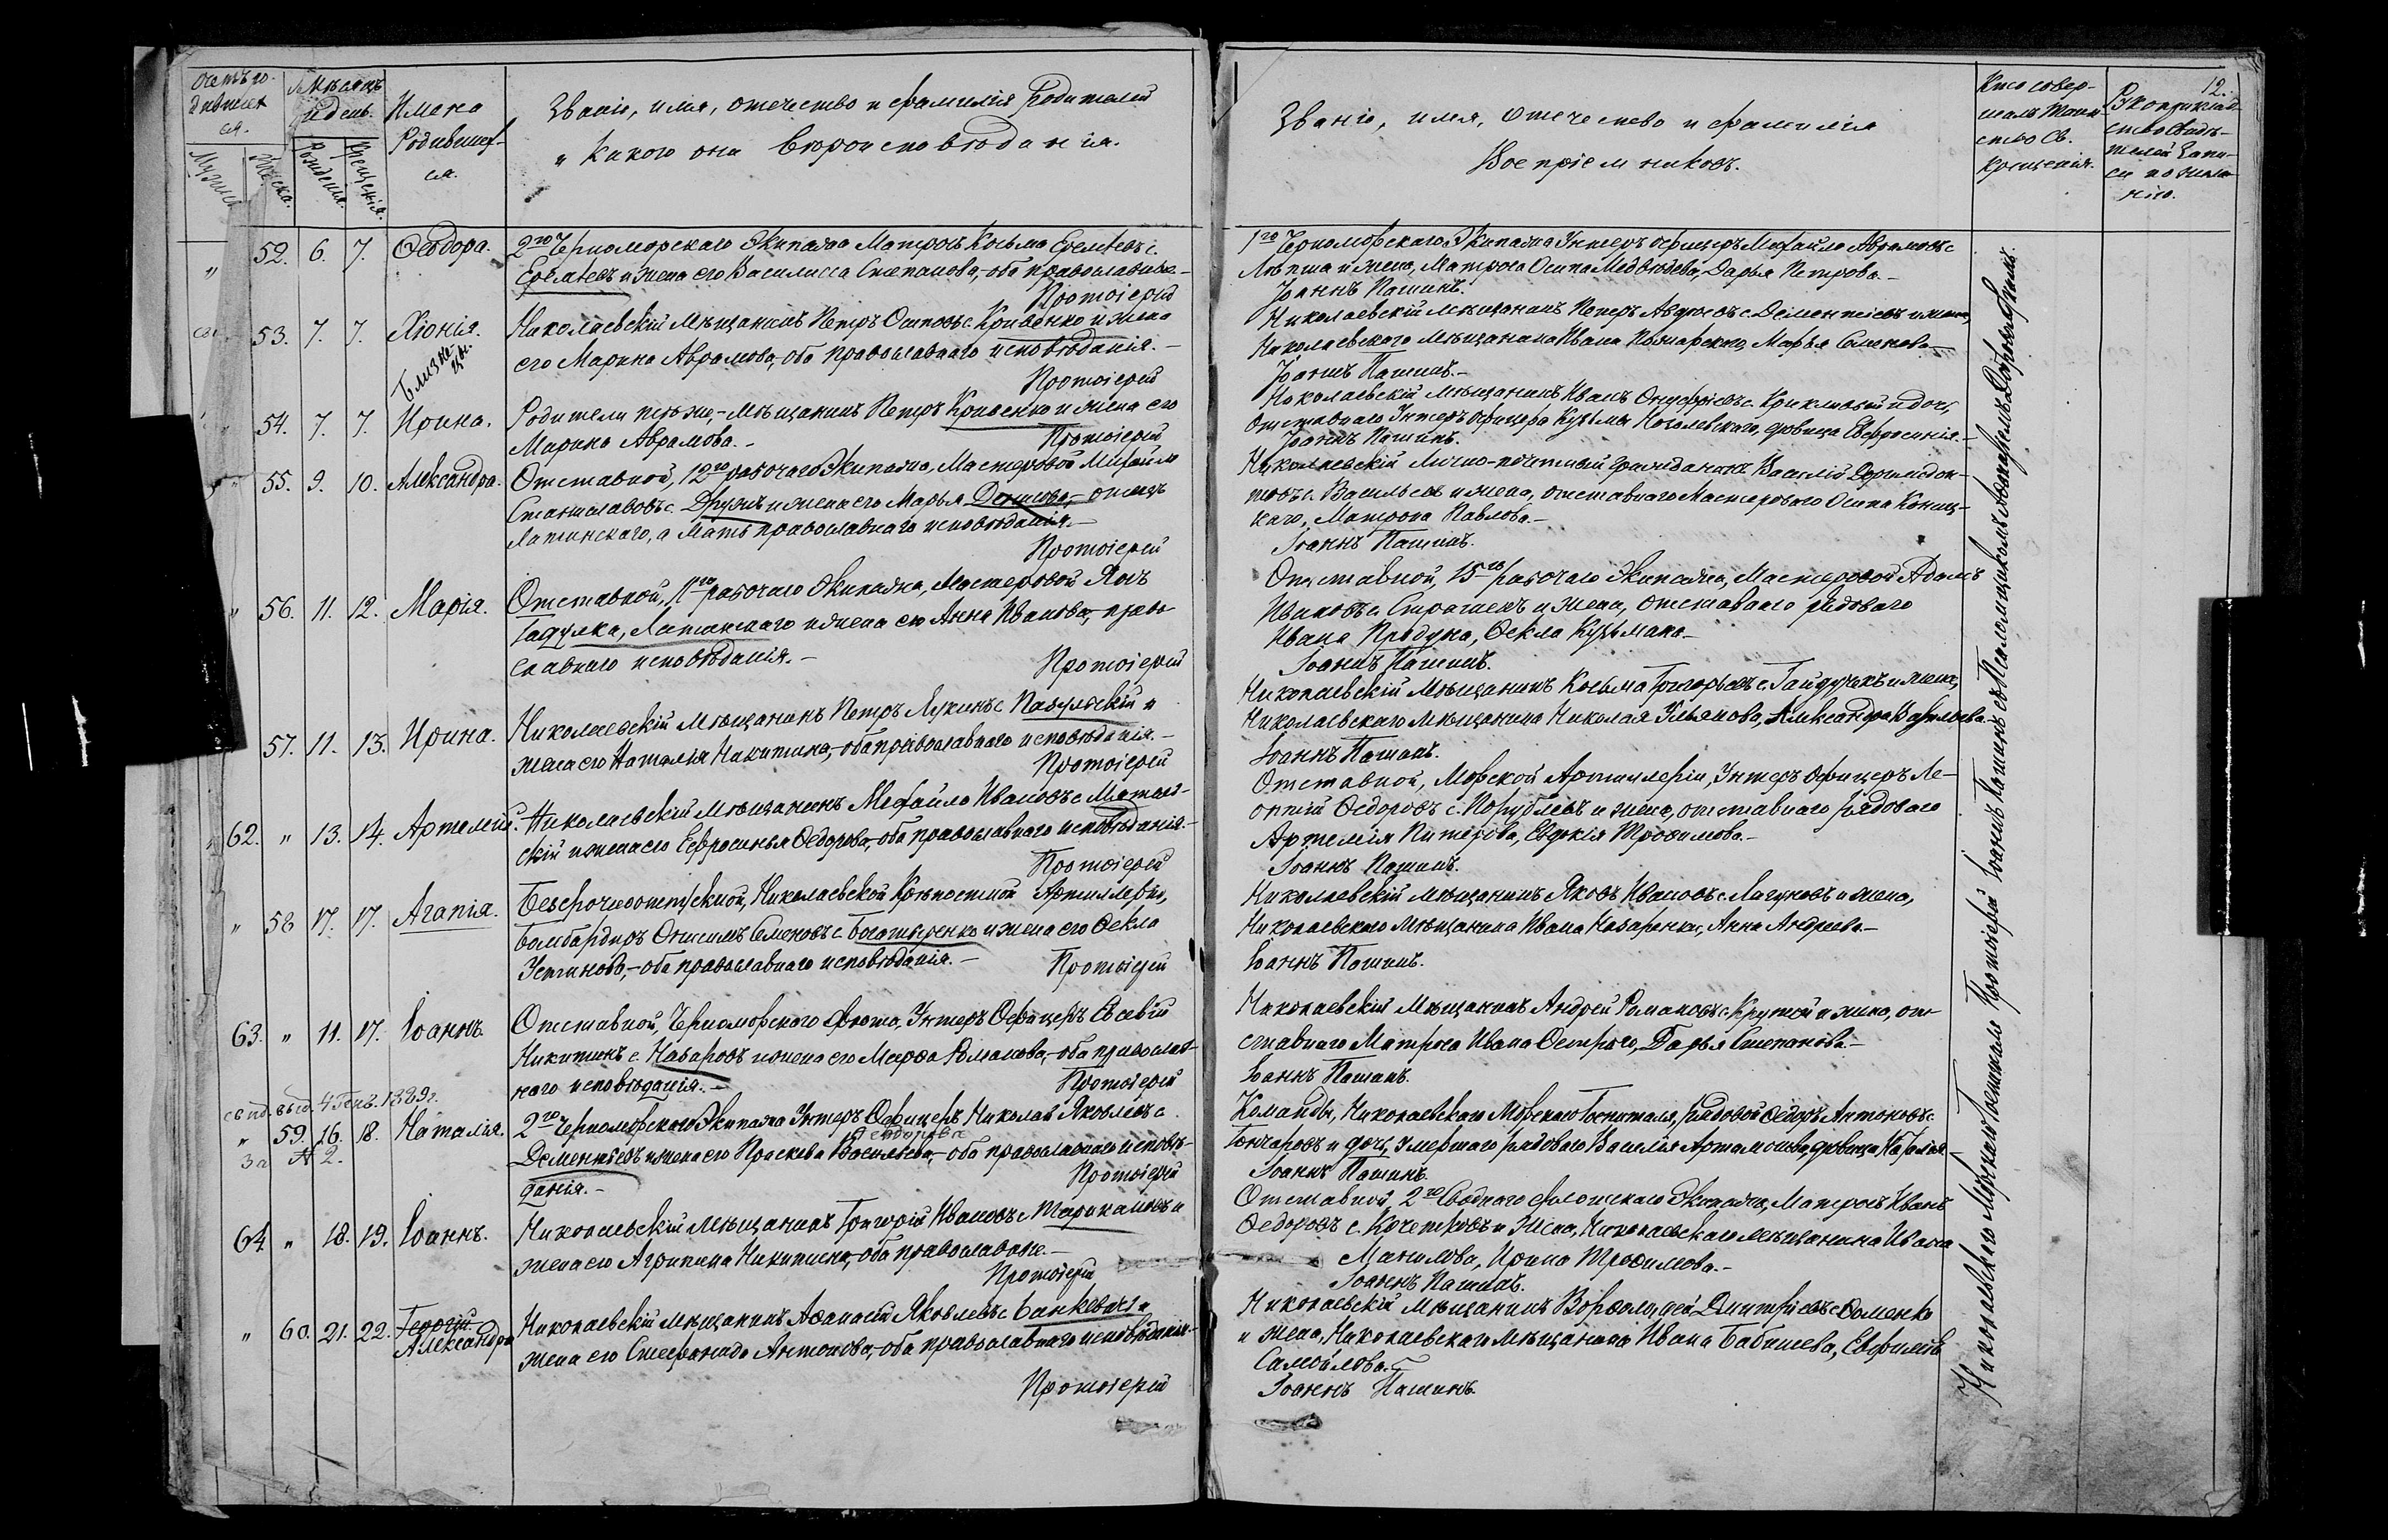 Счетъ ро-
дившихся
ся.
Мѣсяцъ
и день.
Имена
Родивших-
ся.
Званіе, имя, отечество и фамилія Родителей
и Какого они вѣроисповѣданія.
Мужска
Женска.
Рожденія.
Крещенія.
52. 6. 7. Ѳеодора.
2го Черноморскаго Экипажа Матросъ Косьма Еремѣевъ с.
Еремѣевъ и жена его Василисса Степанова,- оба православные.-
Протоіерей
53. 7. 7. Хіонія.
Близне-
цы.
Николаевскій Мѣщанинъ Петръ Осиповъ с. Кривенко и жена
его Марина Аврамова, оба православнаго исповѣданія.-
Протоіерей
54. 7. 7. Ирина.
Родители тѣ же,- Мѣщанинъ Петръ Кривенко и жена его
Марина Аврамова.-
Протоіерей
55. 9. 10. Александра.
Отставной, 12го рабочаго Экипажа, Мастеровой Михайло
Станиславовъ с. Друзь и жена его Марья Денисова,- отецъ
Латинскаго, а Мать православнаго исповѣданія.-
Протоіерей
" 56. 11. 12. Марія.
Отставной, 11го рабочаго Экипажа, Мастеровой Янъ
Гадулка, Латинскаго и жена его Анна Иванова,- право-
славнаго исповѣданія.-
Протоіерей
57. 11. 13. Ирина.
Николаевскій Мѣщанинъ Петръ Лукинъ с. Павульскій и
жена его Наталія Никитина,- оба православнаго исповѣданія.-
Протоіерей
62. " 13. 14. Артемій.
Николаевскій Мѣщанинъ Михайло Ивановъ с.
скій и жена его Ефросинья Ѳедорова,- оба православнаго исповѣданія.-
Протоіерей
" 58 17. 17. Агапія.
Безсрочноотпускной, Николаевской Крѣпостной Артиллеріи,
Бомбардиръ Онисимъ Семеновъ с. Богатыренко и жена его Ѳекла
Устинова,- оба православнаго исповѣданія.-
Протоіерей
63. " 11. 17. Іоаннъ.
Отставной, Черноморскаго флота, Унтеръ Офицеръ Евсевій
Никитинъ с. Назаровъ и жена его Марѳа Романова,- оба православ-
наго исповѣданія.-
Протоіерей
свид. выд. 4 Генв. 1889г.
" 59. 16. 18. Наталія.
за № 2.
2го Черноморскаго Экипажа Унтеръ Офицеръ Николай Яковлевъ с.
Дементьевъ и жена его Праскева Васильева,- оба православнаго исповѣ-
данія.-
Протоіерей
64 " 18. 19. Іоаннъ.
Николаевскій Мѣщанинъ Григорій Ивановъ с. Тарикановъ и
жена его Агрипина Никитина,- оба православные.-
Протоіерей
" 60. 21. 22. Георгій
Александра
Николаевскій Мѣщанинъ Аѳанасій Яковлевъ с. Банкевичъ и
жена его Стефанида Антонова,- оба православнаго исповѣданія.-
Протоіерей
12.
Званіе, имя, отечество и фамилія
Воспріемниковъ.
Кто совер-
шалъ Таин-
ство Св.
Крещенія.
Рукоприклад-
ство свидѣ-
телей запи-
си по жела-
нію.
1го Черноморскаго Экипажа Унтеръ Офицеръ Михайло Аврамовъ с.
Лѣпша и жена, Матроса Осипа Медвѣдева, Дарья Петрова.-
Іоаннъ Пашинъ.
Николаевскій Мѣщанинъ Петръ с. Дементьевъ и жена,
Николаевскаго Мѣщанина Ивана Пожарскаго, Марья Семенова.-
Іоаннъ Пашинъ.-
Николаевскій Мѣщанинъ Иванъ Онуфріевъ с. Крикливый и дочь,
Отставнаго Унтеръ Офицера Кузьмы Коголевскаго, дѣвица Евфросинія.-
Іоаннъ Пашинъ.
Николаевскій Лично-почетный гражданинъ Василій Дормидон-
товъ с. Васильевъ и жена, отставнаго Мастероваго Осипа Кониц-
каго, Матрона Павлова.-
Іоаннъ Пашинъ.
Отставной, 15го рабочаго Экипажа, Мастеровой Адамъ
Ивановъ с. Страшекъ и жена, отставнаго рядоваго
Ивана Продуна, Ѳекла Кузьмина.-
Іоаннъ Пашинъ.
Николаевскій Мѣщанинъ Косьма Григорьевъ с. Гайдучекъ и жена,
Николаевскаго Мѣщанина Николая Ульянова, Александра Васильева.
Іоаннъ Пашинъ.
Отставной, Морской Артиллеріи, Унтеръ Офицеръ Ле-
онтій Ѳедоровъ с. Порублевъ и жена, отставнаго рядоваго
Артемія Питерова, Евдокія Трофимова.-
Іоаннъ Пашинъ.
Николаевскій Мѣщанинъ Яковъ Ивановъ с. Лагуновъ и жена,
Николаевскаго Мѣщанина Ивана Назаренки, Анна Андреева.-
Іоаннъ Пашинъ.
Николаевскій Мѣщанинъ Андрей Романовъ с. Крутой и жена, от-
ставнаго Матроса Ивана Остраго, Дарья Степанова.-
Іоаннъ Пашинъ.
Команды, Николаевскаго Морскаго Госпиталя, рядовой Ѳедоръ Антоновъ с.
Гончаровъ и дочь, умершаго рядоваго Василія Артамонова, дѣвица Наталія.
Іоаннъ Пашинъ.
Отставной, 2го Своднаго флотскаго Экипажа, Матросъ Иванъ
Ѳедоровъ с. Кочетковъ и жена, Николаевскаго мѣщанина Ивана
Манилова, Ирина Трофимова.-
Іоаннъ Пашинъ.
Николаевскій Мѣщанинъ Варѳоломей Дмитріевъ с. Ѳоменко
и жена, Николаевскаго Мѣщанина Ивана Бабишева, Евфимія
Самойлова.-
Іоаннъ Пашинъ.
Николаевскаго Морскаго Госпиталя Протоіерей Іоаннъ Пашинъ съ Псаломщикомъ